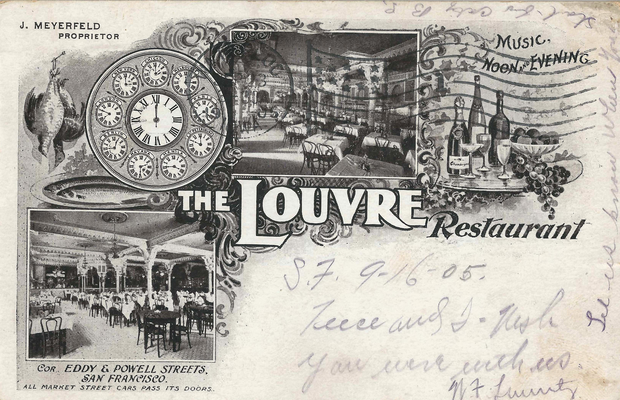 J. MEYERFELD
PROPRIETOR
MUSIC,
NOON, & EVENING
THE LOUVRE Restaurant
S.F. 9-16-05.
and I - Wish
You were with us
COR. EDDY & POWELL STREETS,
SAN FRANCISCO.
ALL MARKET STREET CARS PASS ITS DOORS.
Let us know when